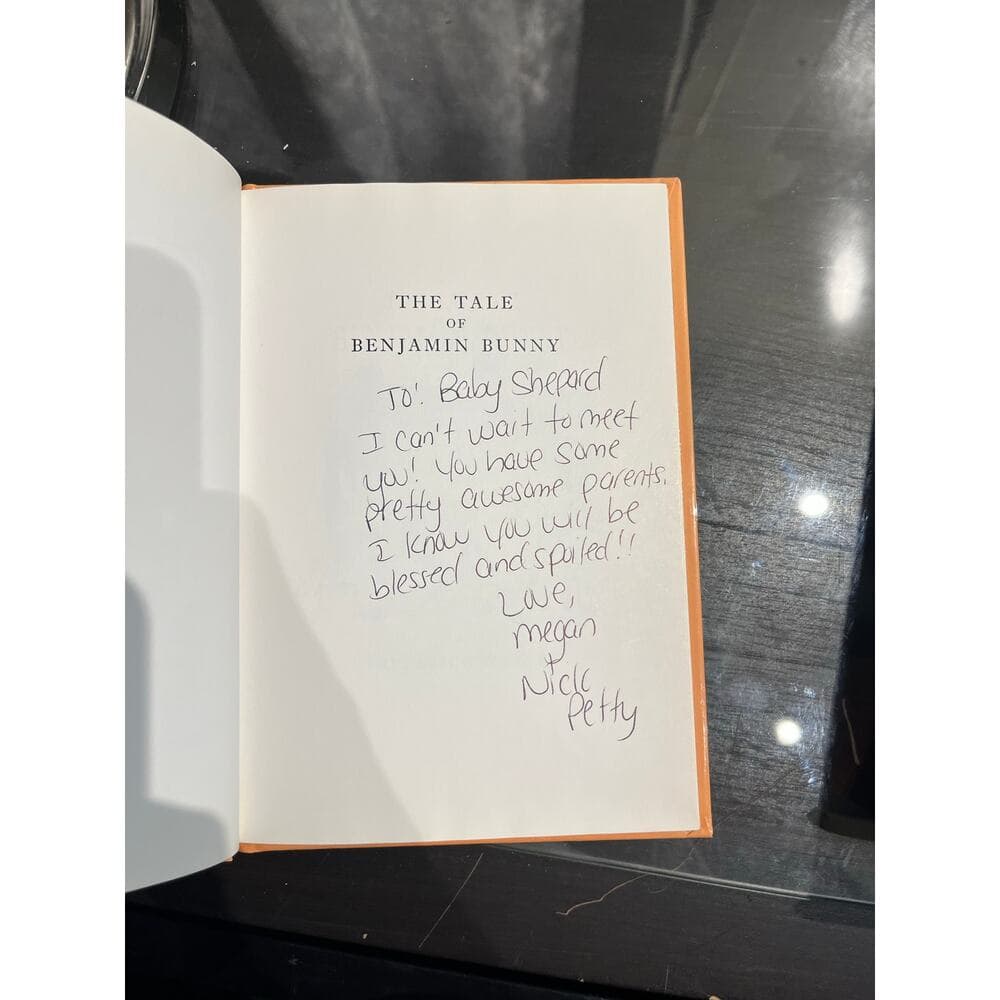 THE TALE
OF
BENJAMIN BUNNY
To: Baby Shepard
I can't wait to meet
you! You have some
pretty awesome parents.
I know you will be
blessed and spoiled!!
Love,
Megan
+
Nick
Petty